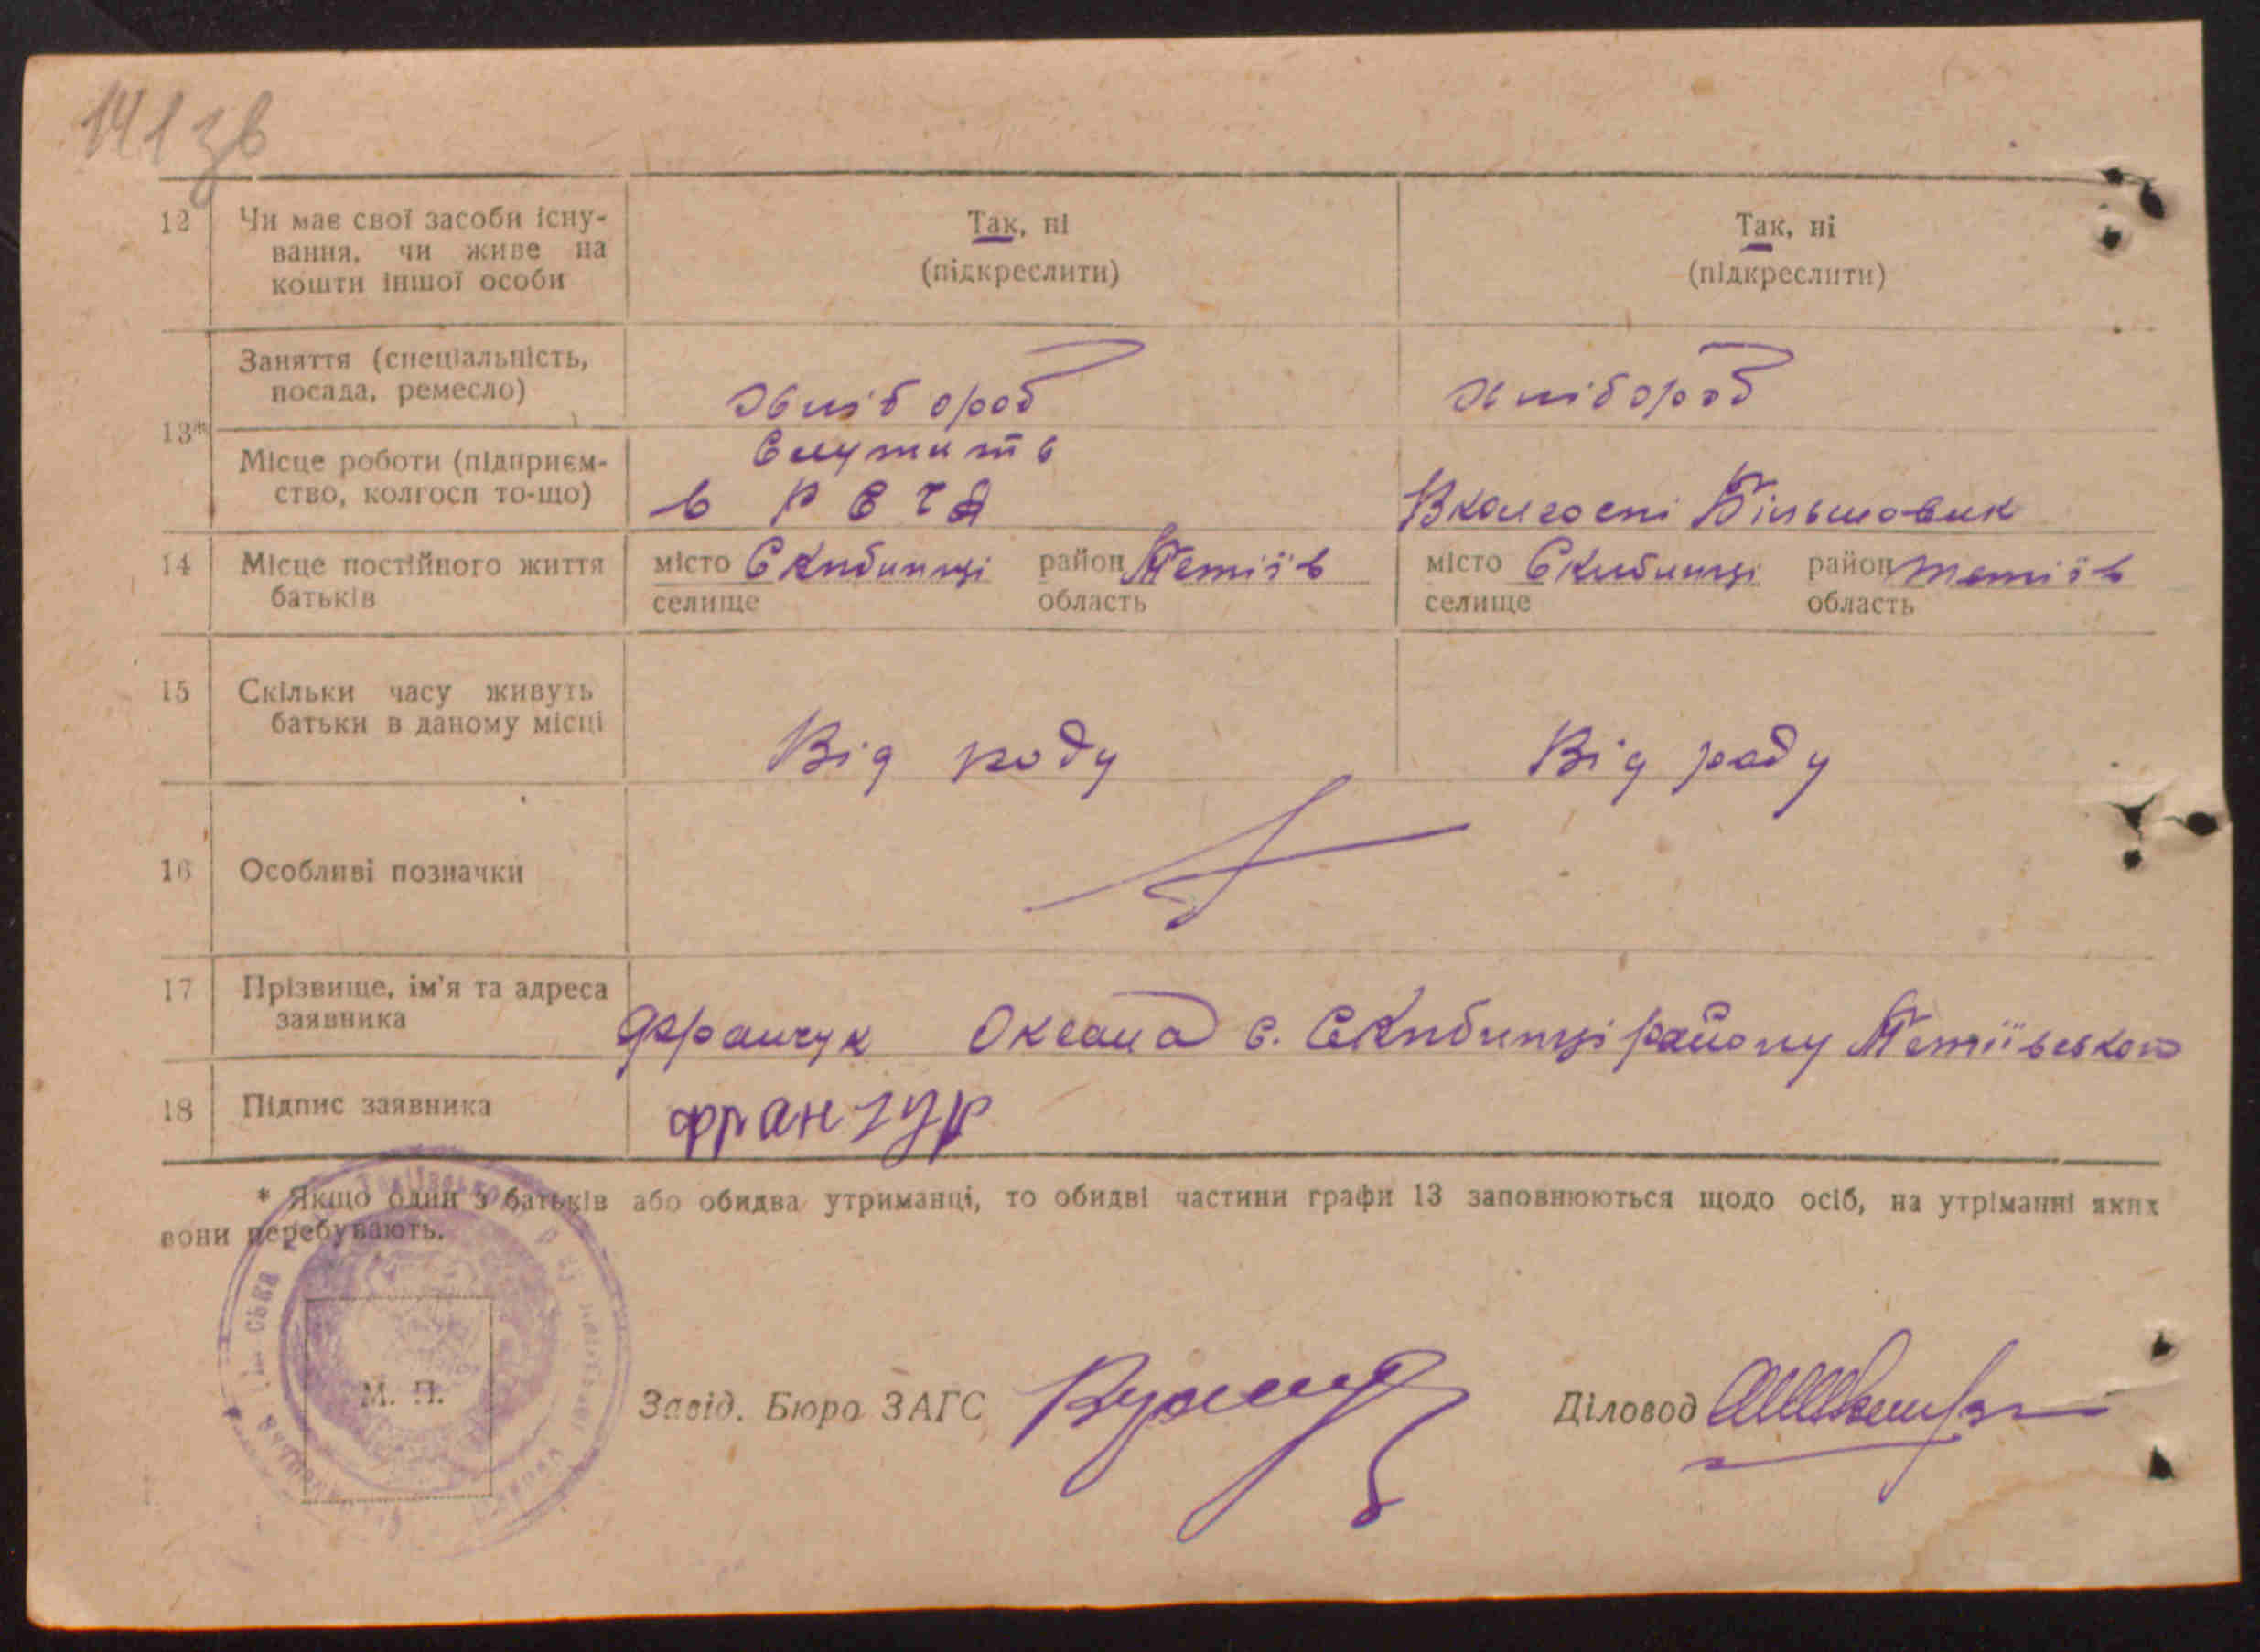 141 зв
12 Чи має свої засоби існу-
вання, чи живе на
кошти іншої особи
Так, ні
(підкреслити)
Так, ні
(підкреслити)
13*
Заняття (спеціальність,
посада, ремесло)
Хлібороб
Хлібороб
Місце роботи (підприєм-
ство, колгосп то-що)
Служить
в Р С Ч А
В колгоспі Більшовик
14 Місце постійного життя
батьків
місто Скибинці район Тетіїв
селище область
місто Скибинці район Тетіїв
селище область
15 Скільки часу живуть
батьки в даному місці
Від роду
Від роду
16 Особливі позначки
17 Прізвище, ім'я та адреса
заявника
Франчук Оксана с. Скибинці району Тетіївського
18 Підпис заявника
* Якщо один з батьків або обидва утриманці, то обидві частини графи 13 заповнюються щодо осіб, на утріманні яких
вони перебувають.
М. П.
Завід. Бюро ЗАГС
Діловод